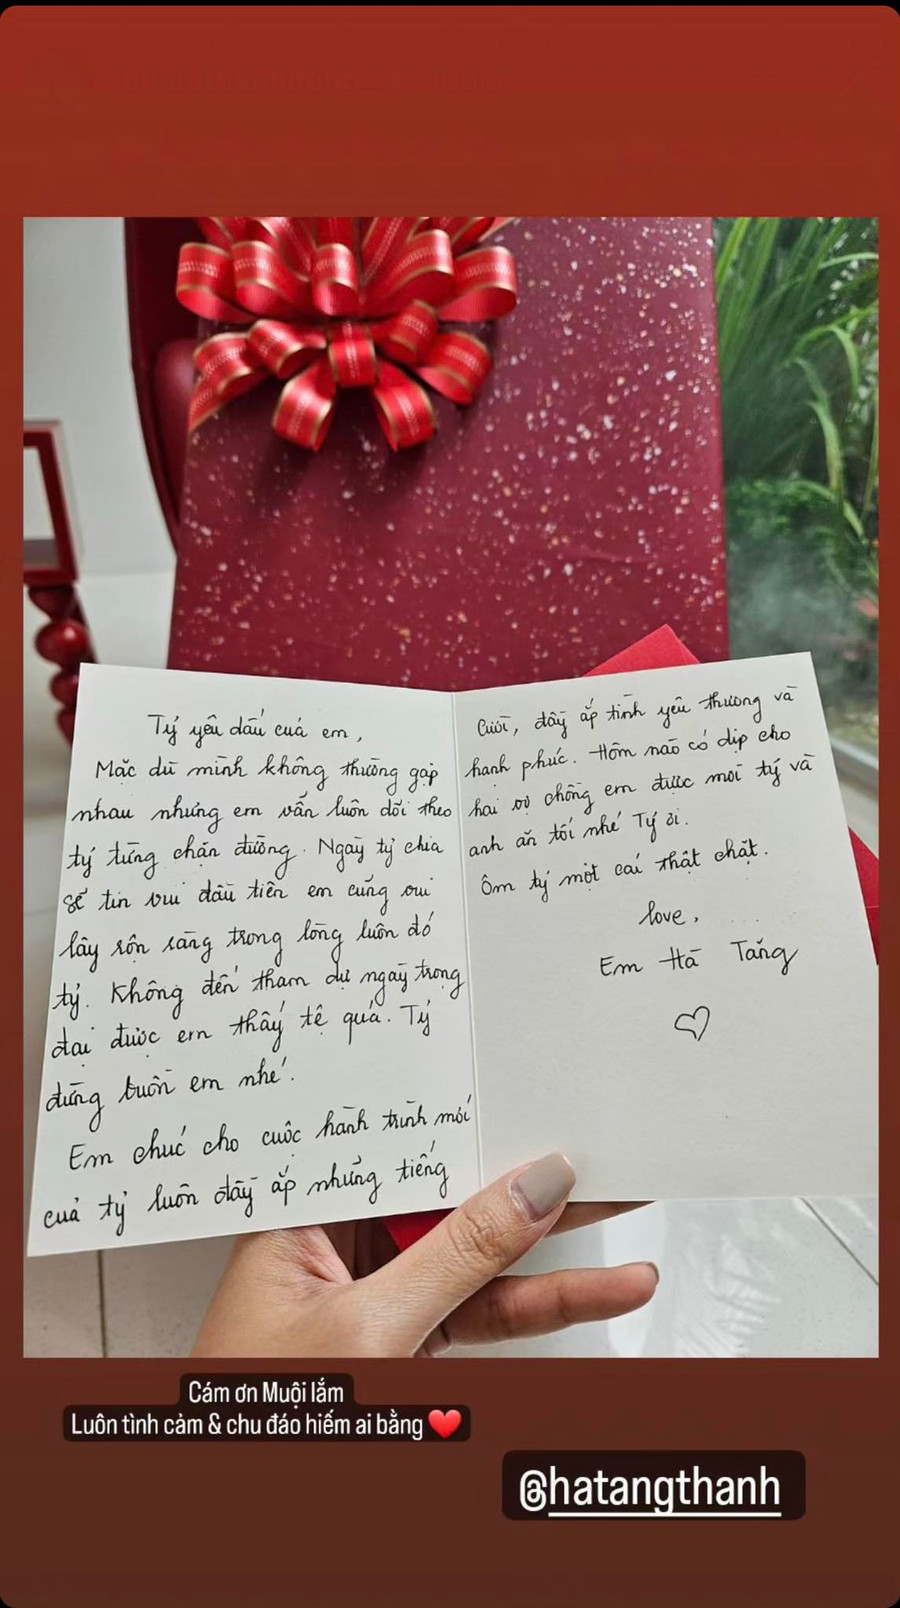 Tỷ yêu dấu của em,
Mặc dù mình không thường gặp
nhau nhưng em vẫn luôn dõi theo
tỷ từng chặn đường. Ngày tỷ chia
sẻ tin vui đầu tiên em cũng vui
lây rộn ràng trong lòng luôn đó
tỷ. Không đến tham dự ngày trọng
đại được em thấy tệ quá. Tỷ
đừng buồn em nhé.
Em chúc cho cuộc hành trình mới
của tỷ luôn đầy ắp những tiếng
cười, đầy ắp tình yêu thương và
hạnh phúc. Hôm nào có dịp cho
hai vợ chồng em được mời tỷ và
anh ăn tối nhé Tỷ ơi.
Ôm tỷ một cái thật chặt.
love,
Em Hà Tăng
Cám ơn Muội lắm
Luôn tình cảm & chu đáo hiếm ai bằng ❤️
@hatangthanh